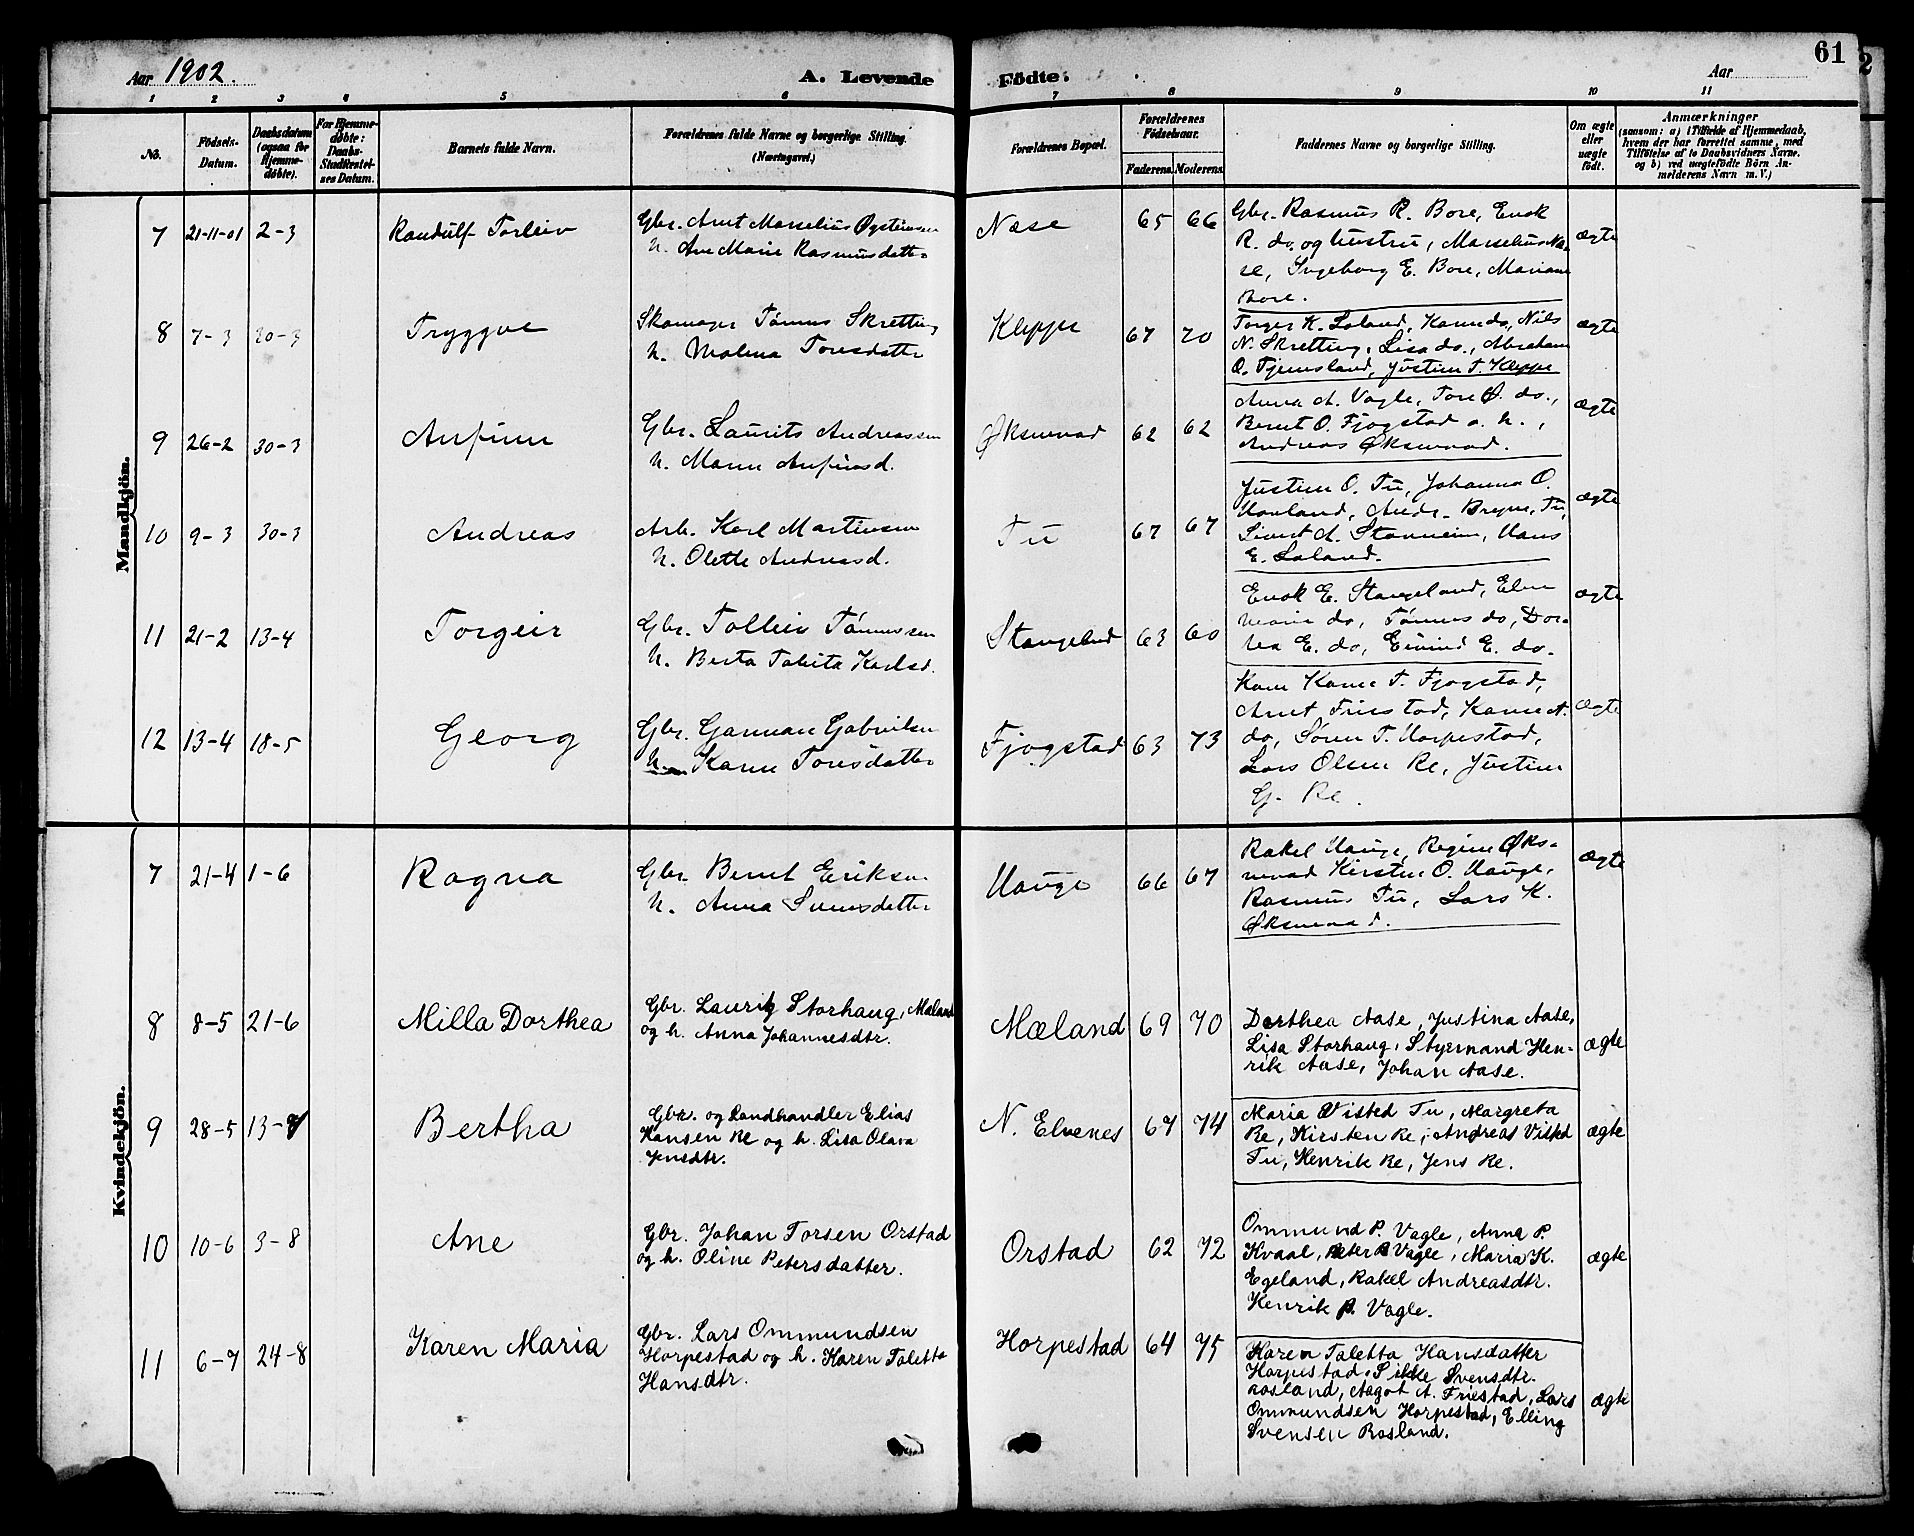 61
Aar 1902. A. Levende Födte. Aar
1 2 3 4 5 6 7 8 9 10 11
No. Födsels-Datum. Daabsdatum (ogsaa for Hjemmedöbte). For Hjemmedöbte: Daabs-Stadfæstelses Datum. Barnets fulde Navn. Forældrenes fulde Navne og borgerlige Stilling. (Næringsvei.) Forældrenes Bopæl. Forældrenes Födselsaar. Faderens. Moderens. Faddernes Navne og borgerlige Stilling. Om ægte eller uægte födt. Anmærkninger (saasom: a) i Tilfælde af Hjemmedaab, hvem der har forrettet samme, med Tilföielse af to Daabsvidners Navne, og b) ved uægtefödte Börn Anmelderens Navn m. V.)
Mandkjön.
7 21-11-01 2-3 Randulf Torleiv Gbr. Arnt Marselius Øysteinsen Næse 65 66 Gbr. Rasmus R. Bore, Enok ægte
h. Ane Marie Rasmusdatter R. do. og hustru, Marselius Næ-
se, Ingeborg E. Bore, Mariane
Bore.
8 7-3 30-3 Tryggve Skomager Tønnes Skretting Kleppe 67 70 Torger K. Laland, Karen do, Nils ægte
h. Malena Toresdatter N. Skretting, Lisa do., Abraham
O. Tjemsland, Justine T. Kleppe
9 26-2 30-3 Anfinn Gbr. Laurits Andreassen Øksnevad 62 62 Anna A. Vagle, Tore O. do., ægte
h. Maren Anfinsd. Bernt O. Fjogstad o. h.,
Andreas Øksnevad.
10 9-3 30-3 Andreas Arb. Karl Martinsen Tu 67 67 Justine O. Tu, Johanna O. ægte
h. Olette Andreasd. Haaland, Andr. Bryne, Tu,
Sivert A. Stanheim, Hans
E. Laland.
11 21-2 13-4 Torgeir Gbr. Tolleiv Tønnessen Stangeland 63 60 Enok E. Stangeland, Elen ægte
h. Berta Tabita Karlsd. Marie do, Tønnes do, Dor-
tea E. do, Eivind E. do.
12 13-4 18-5 Georg Gbr. Gabrielsen Fjogstad 63 73 Kone Karen T. Fjogstad, ægte
h. Karen Toresdatter Arnt Friestad, Karen A.
do, Søren T. Horpestad,
Lars Olsen Re, Justine
G. Re.
Kvindekjön.
7 21-4 1-6 Ragna Gbr. Bernt Eriksen Hauge 66 67 Rakel Hauge, Regine Øks- ægte
h. Anna Svensdatter nevad Kirstine O. Hauge,
Rasmus Tu, Lars K.
Øksnevad.
8 8-5 21-6 Milla Dorthea Gbr. Laurits Storhaug, Mæland Mæland 69 70 Dorthea Aase, Justina Aase, ægte
og h. Anna Johannesdtr. Lisa Storhaug, Styrmand Hen-
rik Aase, Johan Aase.
9 28-5 13-7 Bertha Gbr. og Landhandler Elias N. Elvenes 67 74 Maria Visted Tu, Margreta ægte
Hansen Re og h. Lisa Olava Re, Kirsten Re, Andreas Visted
Jensdtr. Tu, Henrik Re, Jens Re.
10 10-6 3-8 Ane Gbr. Johan Torsen Orstad Orstad 62 72 Ommund P. Vagle, Anna P. ægte
og h. Oline Petersdatter. Kvaal, Peter P Vagle, Maria K.
Egeland, Rakel Andreasdtr.
Henrik P. Vagle.
11 6-7 24-8 Karen Maria Gbr. Lars Ommundsen Horpestad 64 75 Karen Taletta Hansdatter ægte
Horpestad og h. Karen Taletta Horpestad, Sikke Svensdtr.
Hansdtr. Rosland, Aagot A. Friestad, Lars
Ommundsen Horpestad, Elling
Svensen Rosland.